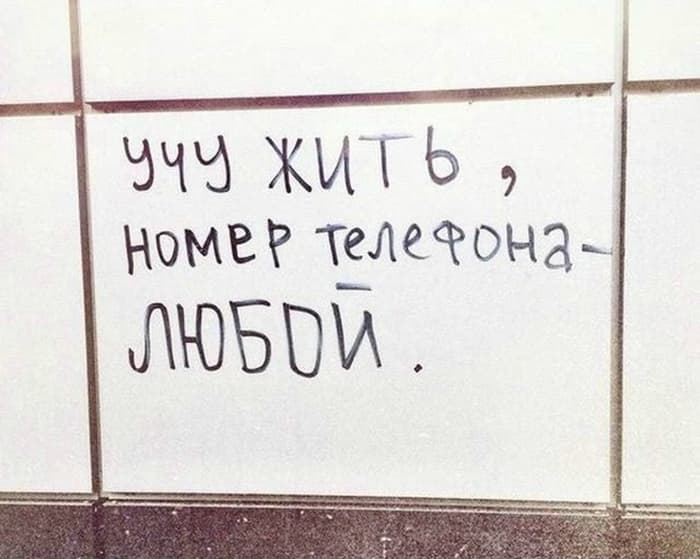 учу жить,
номер телефона–
ЛЮБОЙ.